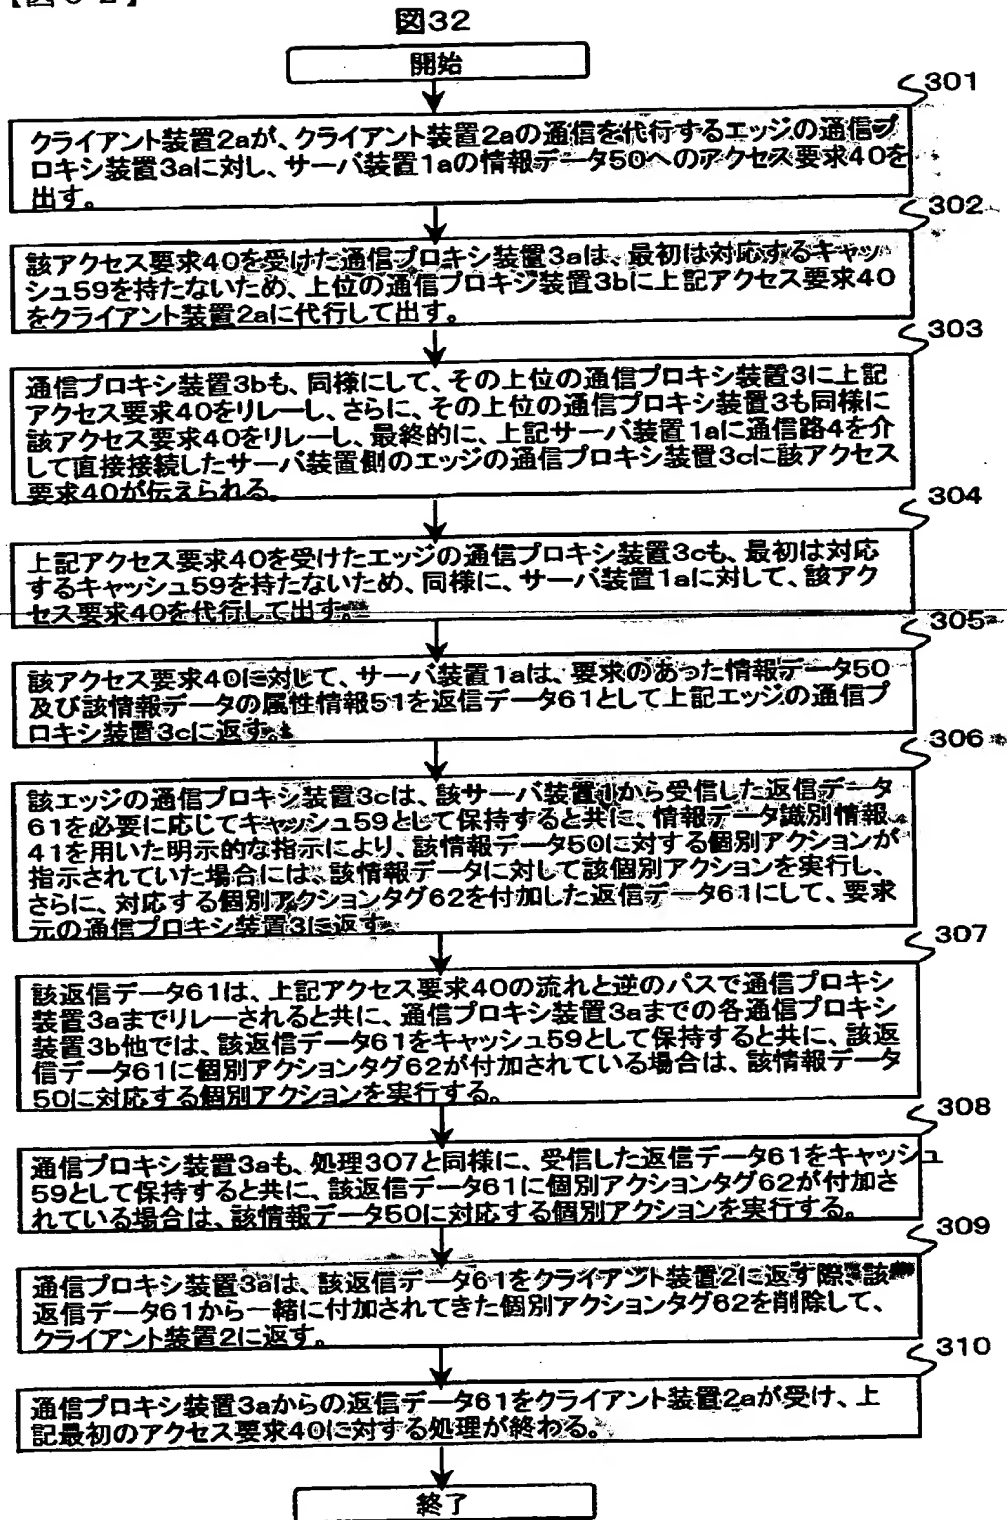 【図32】
図32
開始
301
クライアント装置2aが、クライアント装置2aの通信を代行するエッジの通信プ
ロキシ装置3aに対し、サーバ装置1aの情報データ50へのアクセス要求40を
出す。
302
該アクセス要求40を受けた通信プロキシ装置3aは、最初は対応するキャッ
シュ59を持たないため、上位の通信プロキシ装置3bに上記アクセス要求40
をクライアント装置2aに代行して出す。
303
通信プロキシ装置3bも、同様にして、その上位の通信プロキシ装置3に上記
アクセス要求40をリレーし、さらに、その上位の通信プロキシ装置3も同様に
該アクセス要求40をリレーし、最終的に、上記サーバ装置1aに通信路4を介
して直接接続したサーバ装置側のエッジの通信プロキシ装置3cに該アクセス
要求40が伝えられる。
304
上記アクセス要求40を受けたエッジの通信プロキシ装置3cも、最初は対応
するキャッシュ59を持たないため、同様に、サーバ装置1aに対して、該アク
セス要求40を代行して出す。
305
該アクセス要求40に対して、サーバ装置1aは、要求のあった情報データ50
及び該情報データの属性情報51を返信データ61として上記エッジの通信プ
ロキシ装置3cに返す。
306
該エッジの通信プロキシ装置3cは、該サーバ装置1から受信した返信データ
61を必要に応じてキャッシュ59として保持すると共に、情報データ識別情報
41を用いた明示的な指示により、該情報データ50に対する個別アクションが
指示されていた場合には、該情報データに対して該個別アクションを実行し、
さらに、対応する個別アクションタグ62を付加した返信データ61にして、要求
元の通信プロキシ装置3に返す。
307
該返信データ61は、上記アクセス要求40の流れと逆のパスで通信プロキシ
装置3aまでリレーされると共に、通信プロキシ装置3aまでの各通信プロキシ
装置3b他では、該返信データ61をキャッシュ59として保持すると共に、該返
信データ61に個別アクションタグ62が付加されている場合は、該情報データ
50に対応する個別アクションを実行する。
308
通信プロキシ装置3aも、処理307と同様に、受信した返信データ61をキャッシュ
59として保持すると共に、該返信データ61に個別アクションタグ62が付加さ
れている場合は、該情報データ50に対応する個別アクションを実行する。
309
通信プロキシ装置3aは、該返信データ61をクライアント装置2に返す際、該
返信データ61から一緒に付加されてきた個別アクションタグ62を削除して、
クライアント装置2に返す。
310
通信プロキシ装置3aからの返信データ61をクライアント装置2aが受け、上
記最初のアクセス要求40に対する処理が終わる。
終了